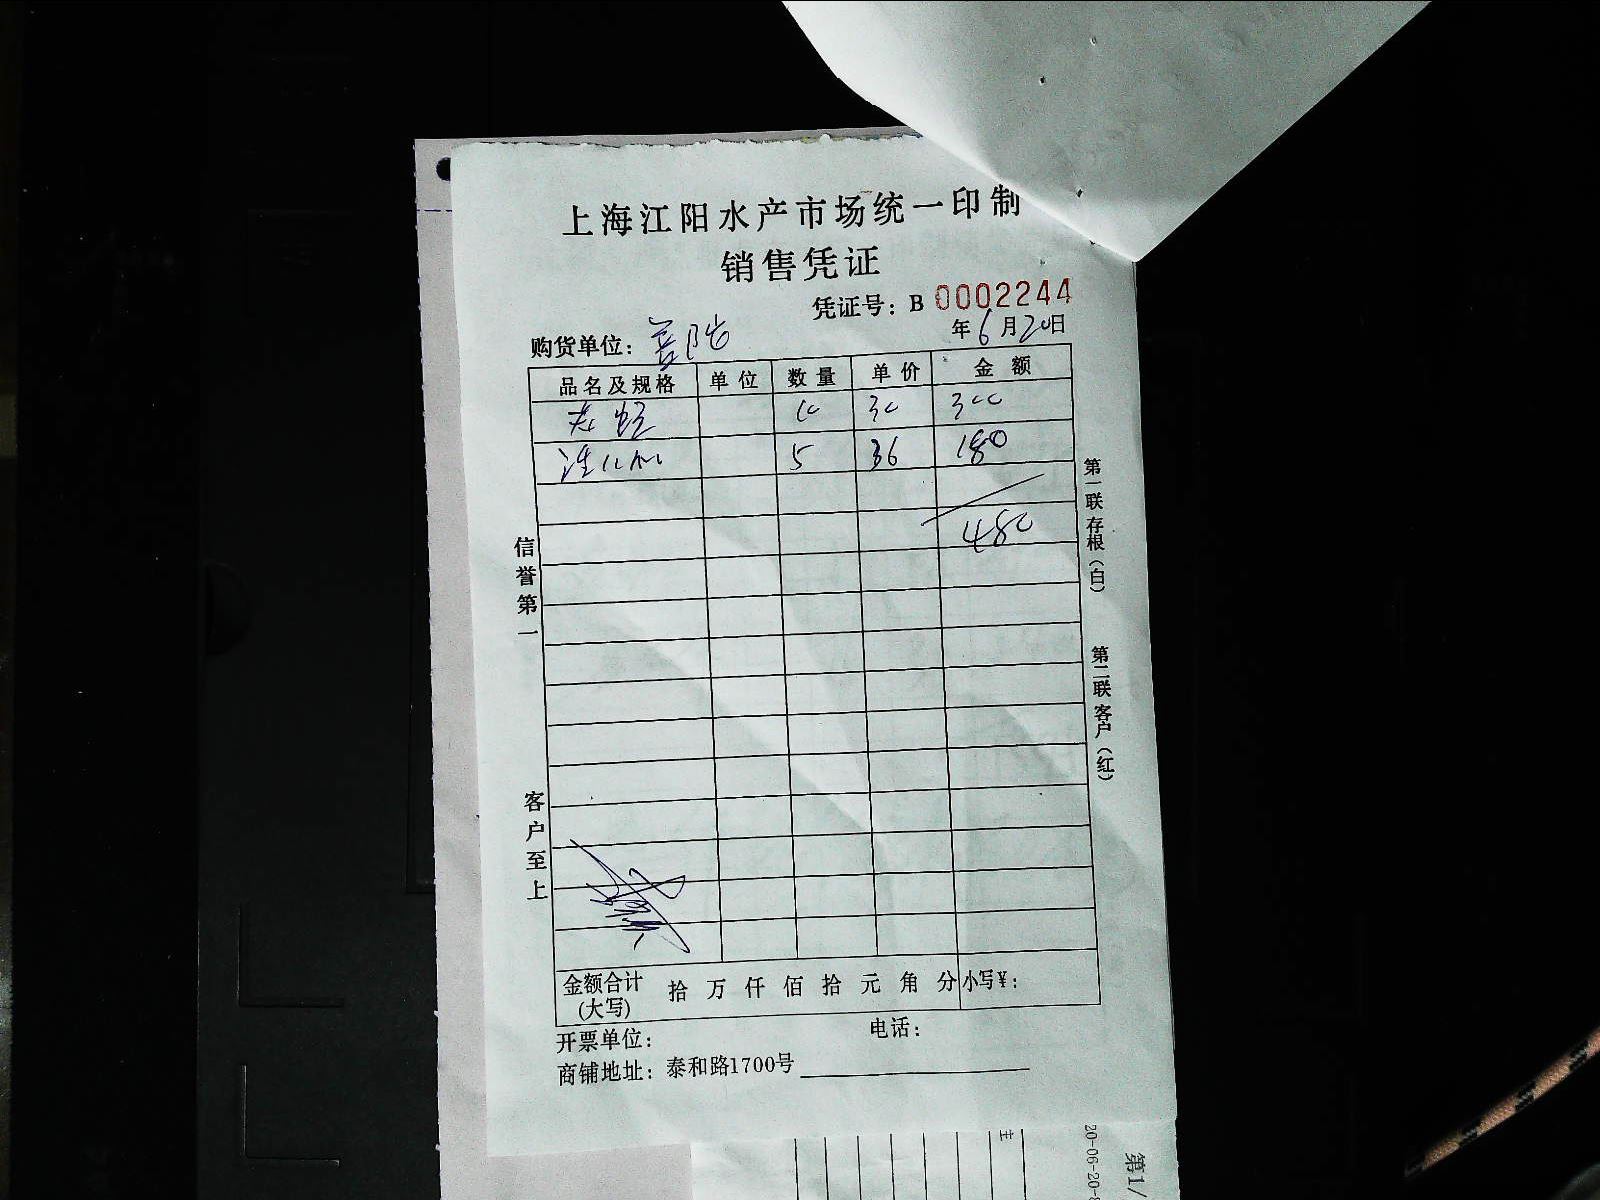 上海江阳水产市场统一印制
销售凭证
凭证号：B 0002244
购货单位： 年6月20日
品名及规格 单位 数量 单价 金额
10 30 300
5 36 180
480
信誉第一
客户至上
第一联存根（白）
第二联客户（红）
金额合计（大写） 拾 万 仟 佰 拾 元 角 分 小写￥：
开票单位： 电话：
商铺地址：泰和路1700号
主
20-06-20-
第1/